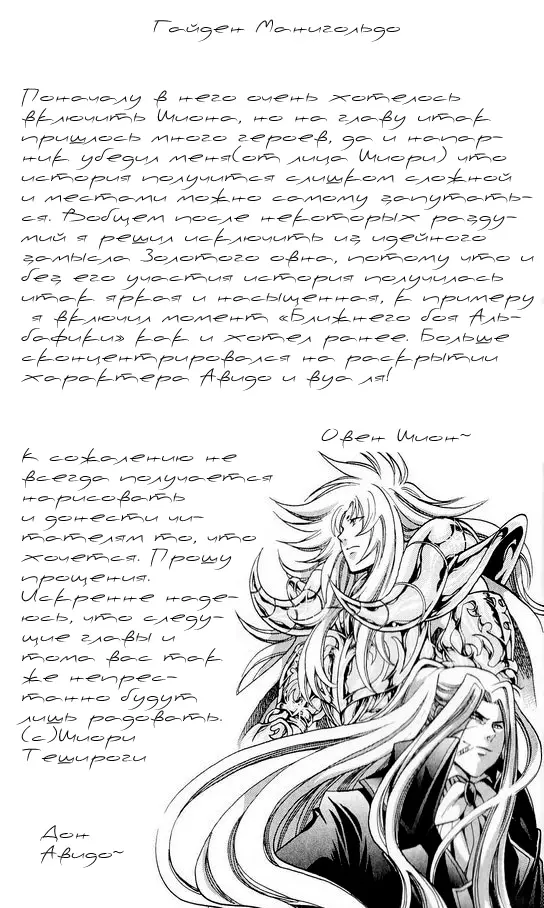 Гайден Манигольдо
Поначалу в него очень хотелось
включить Шиона, но на главу итак
пришлось много героев, да и напар-
ник убедил меня(от лица Шиори) что
история получится слишком сложной
и местами можно самому запутать-
ся. Вобщем после некоторых разду-
мий я решил исключить из идейного
замысла Золотого овна, потому что и
без его участия история получилась
итак яркая и насыщенная, к примеру
я включил момент «Ближнего боя Аль-
бафики» как и хотел ранее. Больше
сконцентрировался на раскрытии
характера Авидо и вуа ля!
Овен Шион~
К сожалению не
всегда получается
нарисовать
и донести чи-
тателям то, что
хочется. Прошу
прощения.
Искренне наде-
юсь, что следу-
щие главы и
тома вас так
же непрес-
танно будут
лишь радовать.
(с)Шиори
Тешироги
Дон
Авидо~